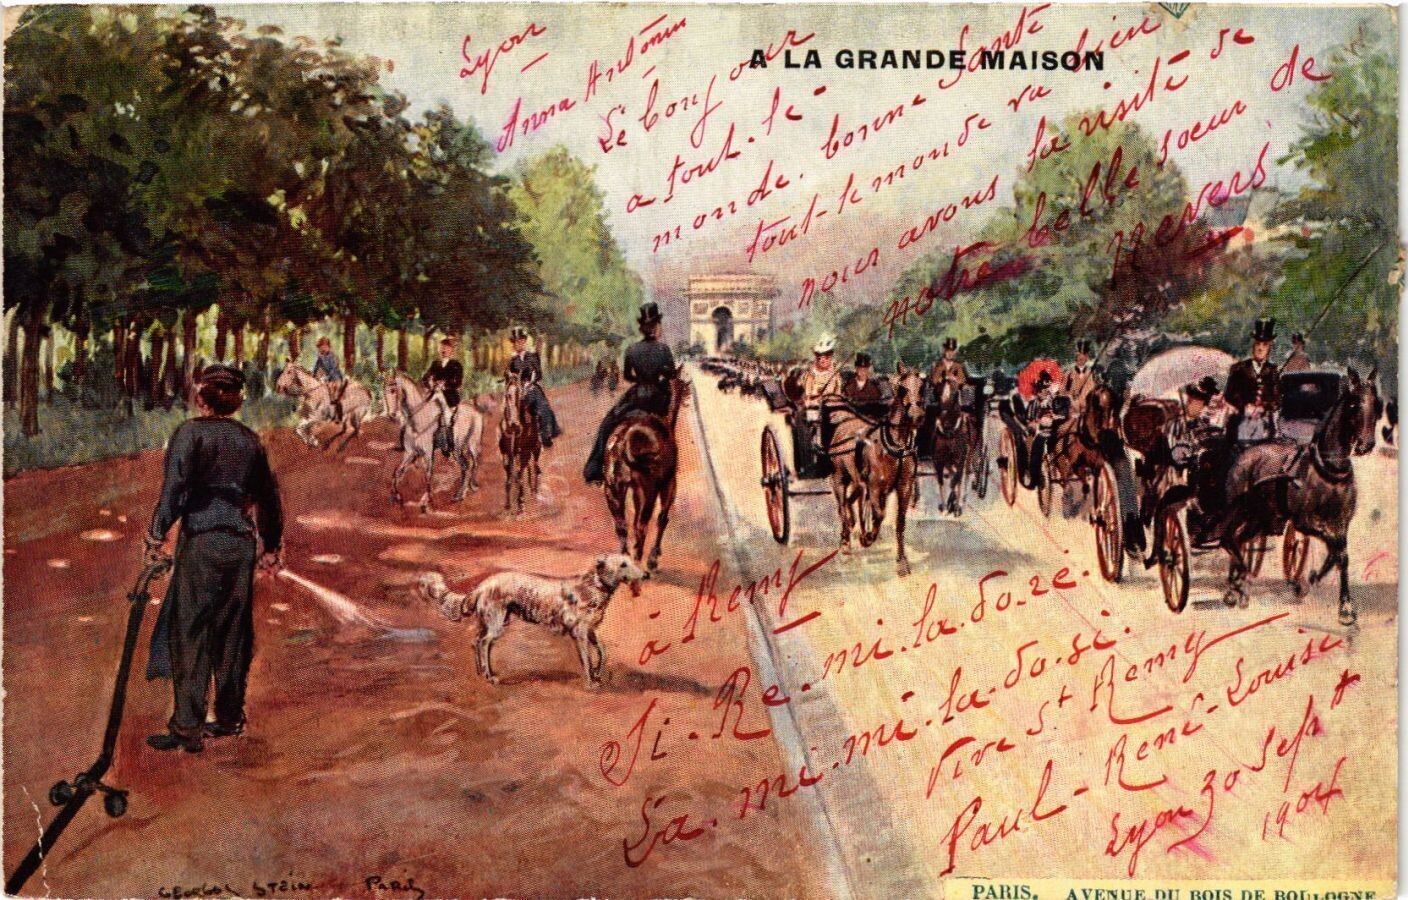 A LA GRANDE MAISON
Lyon
Anna Antonin
Le bonjour
a tout-le
monde. bonne Santé
tout-le monde va bien
nous avons la visite de
notre belle soeur de
Nevers
à Remy
Si-Re-mi.la.do.re.
La.mi.mi.la.do.si.
Vive St Remy
Paul-René-Louise
Lyon 30 Sept
1904
GEORGES STEIN PARIS
PARIS. AVENUE DU BOIS DE BOULOGNE